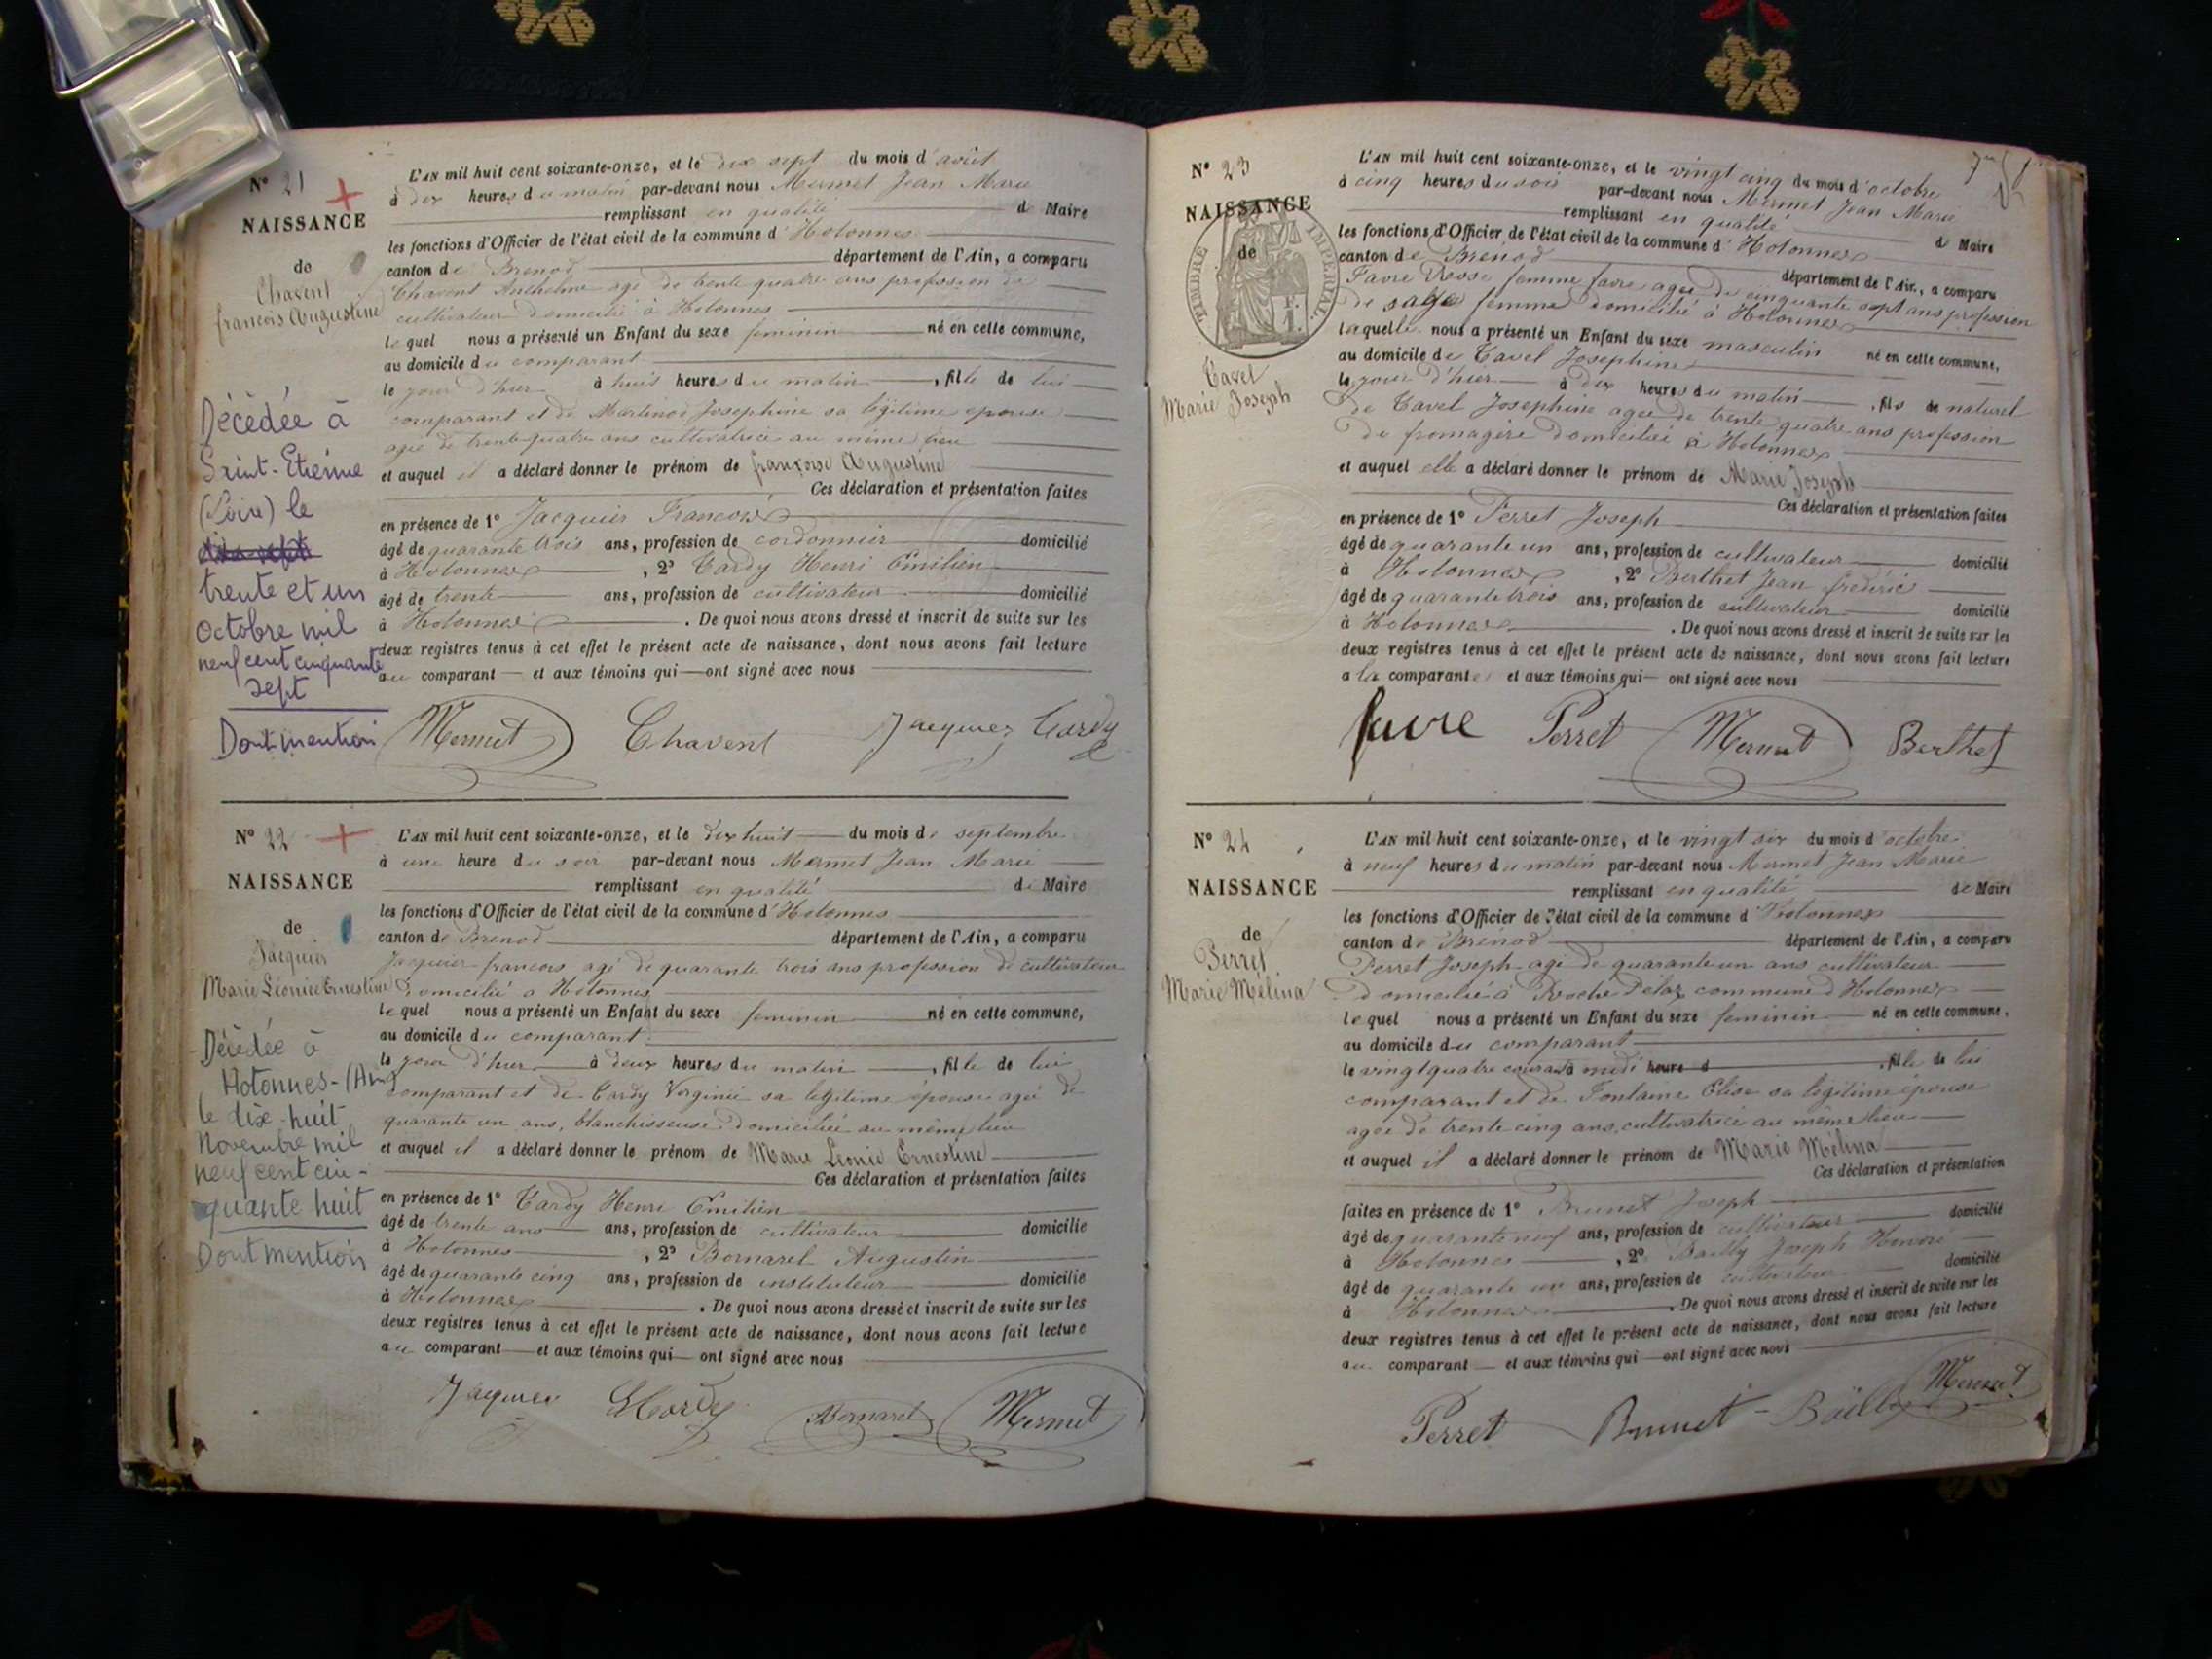 N° 21
NAISSANCE
de
Chavent
francois Augustine
Décédée à
Saint-Etienne
(Loire) le
trente et un
Octobre mil
neuf cent cinquante
sept
Dont mention
L'AN mil huit cent soixante-onze, et le dix sept du mois d'août
à dix heures du matin par-devant nous Mermet Jean Marie
remplissant en qualité d Maire
les fonctions d'Officier de l'état civil de la commune d'Hotonnes
canton de Brenod département de l'Ain, a comparu
Chavent Anthelme agé de trente quatre ans profession de
cultivateur domicilié à Hotonnes
lequel nous a présenté un Enfant du sexe feminin né en cette commune,
au domicile du comparant
le jour d'hier à huit heures du matin, fille de lui
comparant et de Martinod Josephine sa légitime épouse
agée de trente quatre ans cultivatrice au même lieu
et auquel il a déclaré donner le prénom de françoise Augustine
Ces déclaration et présentation faites
en présence de 1° Jacquier Francois
âgé de quarante trois ans, profession de cordonnier domicilié
à Hotonnes, 2° Tardy Henri Émilien
âgé de trente ans, profession de cultivateur domicilié
à Hotonnes. De quoi nous avons dressé et inscrit de suite sur les
deux registres tenus à cet effet le présent acte de naissance, dont nous avons fait lecture
au comparant et aux témoins qui ont signé avec nous
Mermet Chavent Jacquier Tardy
N° 22
NAISSANCE
de
Jacquier
Marie Léonie Ernestine
Décédée à
Hotonnes-(Ain)
le dix-huit
Novembre mil
neuf cent cin-
quante huit
Dont mention
L'AN mil huit cent soixante-onze, et le dix huit du mois de septembre
à une heure du soir par-devant nous Mermet Jean Marie
remplissant en qualité de Maire
les fonctions d'Officier de l'état civil de la commune d'Hotonnes
canton de Brenod département de l'Ain, a comparu
Jacquier francois agé de quarante trois ans profession de cultivateur
domicilié a Hotonnes
lequel nous a présenté un Enfant du sexe feminin né en cette commune,
au domicile du comparant
le jour d'hier à deux heures du matin, fille de lui
comparant et de Tardy Virginie sa légitime épouse agée de
quarante un ans, blanchisseuse domiciliée au même lieu
et auquel il a déclaré donner le prénom de Marie Léonie Ernestine
Ces déclaration et présentation faites
en présence de 1° Tardy Henri Émilien
âgé de trente ans ans, profession de cultivateur domicilié
à Hotonnes, 2° Bornarel Augustin
âgé de quarante cinq ans, profession de instituteur domicilié
à Hotonnes. De quoi nous avons dressé et inscrit de suite sur les
deux registres tenus à cet effet le présent acte de naissance, dont nous avons fait lecture
au comparant et aux témoins qui ont signé avec nous
Jacquier Tardy Bornarel Mermet
N° 23
NAISSANCE
de
TIMBRE IMPERIAL
Tavel
Marie Joseph
L'AN mil huit cent soixante-onze, et le vingt cinq du mois d'octobre
à cinq heures du soir par-devant nous Mermet Jean Marie
remplissant en qualité d Maire
les fonctions d'Officier de l'état civil de la commune d'Hotonnes
canton de Brénod département de l'Ain, a comparu
Favre femme favre agée de cinquante sept ans profession
de sage femme domicilié à Hotonnes
laquelle nous a présenté un Enfant du sexe masculin né en cette commune,
au domicile de Tavel Josephine
le jour d'hier à dix heures du matin, fils de naturel
de Tavel Josephine agée de trente quatre ans profession
de fromagère domiciliée à Hotonnes
et auquel elle a déclaré donner le prénom de Marie Joseph
Ces déclaration et présentation faites
en présence de 1° Perret Joseph
âgé de quarante un ans, profession de cultivateur domicilié
à Hotonnes, 2° Berthet Jean frédéric
âgé de quarante trois ans, profession de cultivateur domicilié
à Hotonnes. De quoi nous avons dressé et inscrit de suite sur les
deux registres tenus à cet effet le présent acte de naissance, dont nous avons fait lecture
a la comparante et aux témoins qui ont signé avec nous
favre Perret Mermet Berthet
N° 24
NAISSANCE
de
Perret
Marie Mélina
L'AN mil huit cent soixante-onze, et le vingt six du mois d'octobre
à neuf heures du matin par-devant nous Mermet Jean Marie
remplissant en qualité de Maire
les fonctions d'Officier de l'état civil de la commune d'Hotonnes
canton de Brénod département de l'Ain, a comparu
Perret Joseph agé de quarante un ans cultivateur
domicilié à commune d'Hotonnes
lequel nous a présenté un Enfant du sexe feminin né en cette commune,
au domicile du comparant
le vingt quatre courant à midi heure d, fille de lui
comparant et de Fontaine Elise sa légitime épouse
agée de trente cinq ans, cultivatrice au même lieu
et auquel il a déclaré donner le prénom de Marie Mélina
Ces déclaration et présentation
faites en présence de 1° Brunet Joseph
âgé de quarante neuf ans, profession de cultivateur domicilié
à Hotonnes, 2° Bailly Joseph Honoré
âgé de quarante un ans, profession de cultivateur domicilié
à Hotonnes. De quoi nous avons dressé et inscrit de suite sur les
deux registres tenus à cet effet le présent acte de naissance, dont nous avons fait lecture
au comparant et aux témoins qui ont signé avec nous
Perret Brunet Bailly Mermet